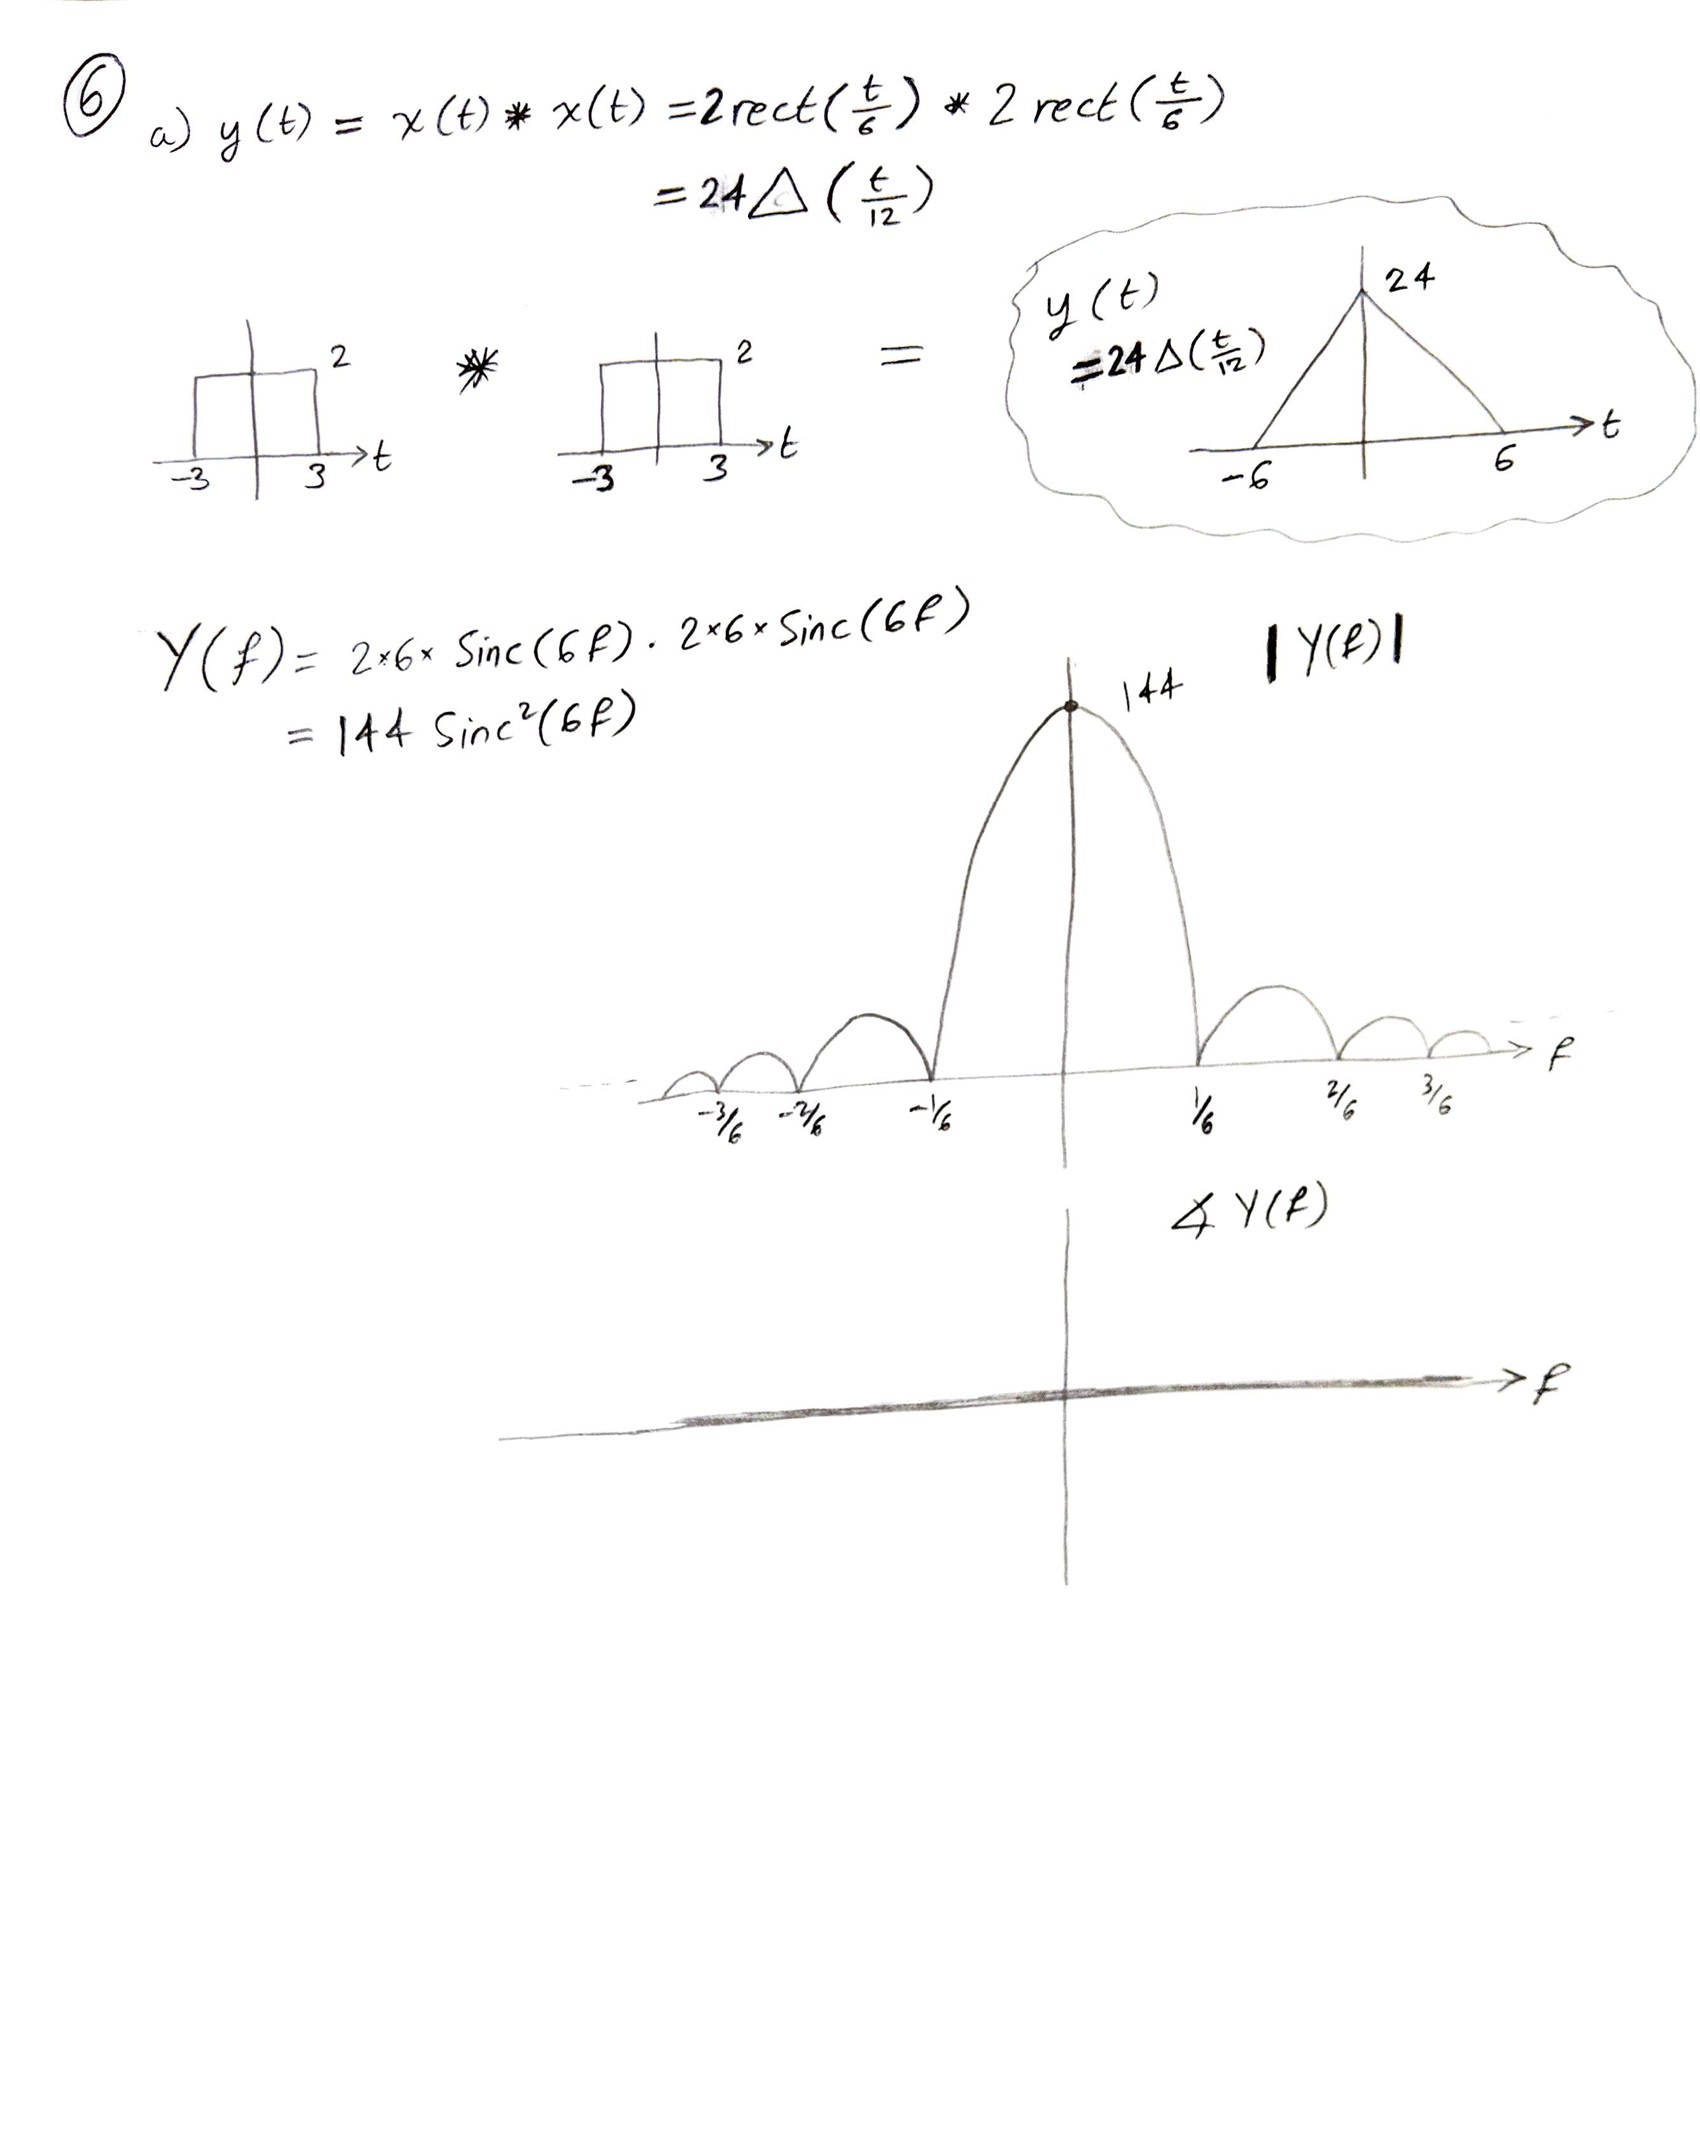 6
a) y(t) = x(t) * x(t) = 2 rect(t/6) * 2 rect(t/6)
= 24 Δ (t/12)
2
-3 3 t
*
2
-3 3 t
=
y(t)
= 24 Δ(t/12)
24
-6 6 t
Y(f) = 2×6× Sinc(6f) . 2×6× Sinc(6f)
= 144 Sinc²(6f)
|Y(f)|
144
-3/6 -2/6 -1/6 1/6 2/6 3/6 f
∡ Y(f)
f